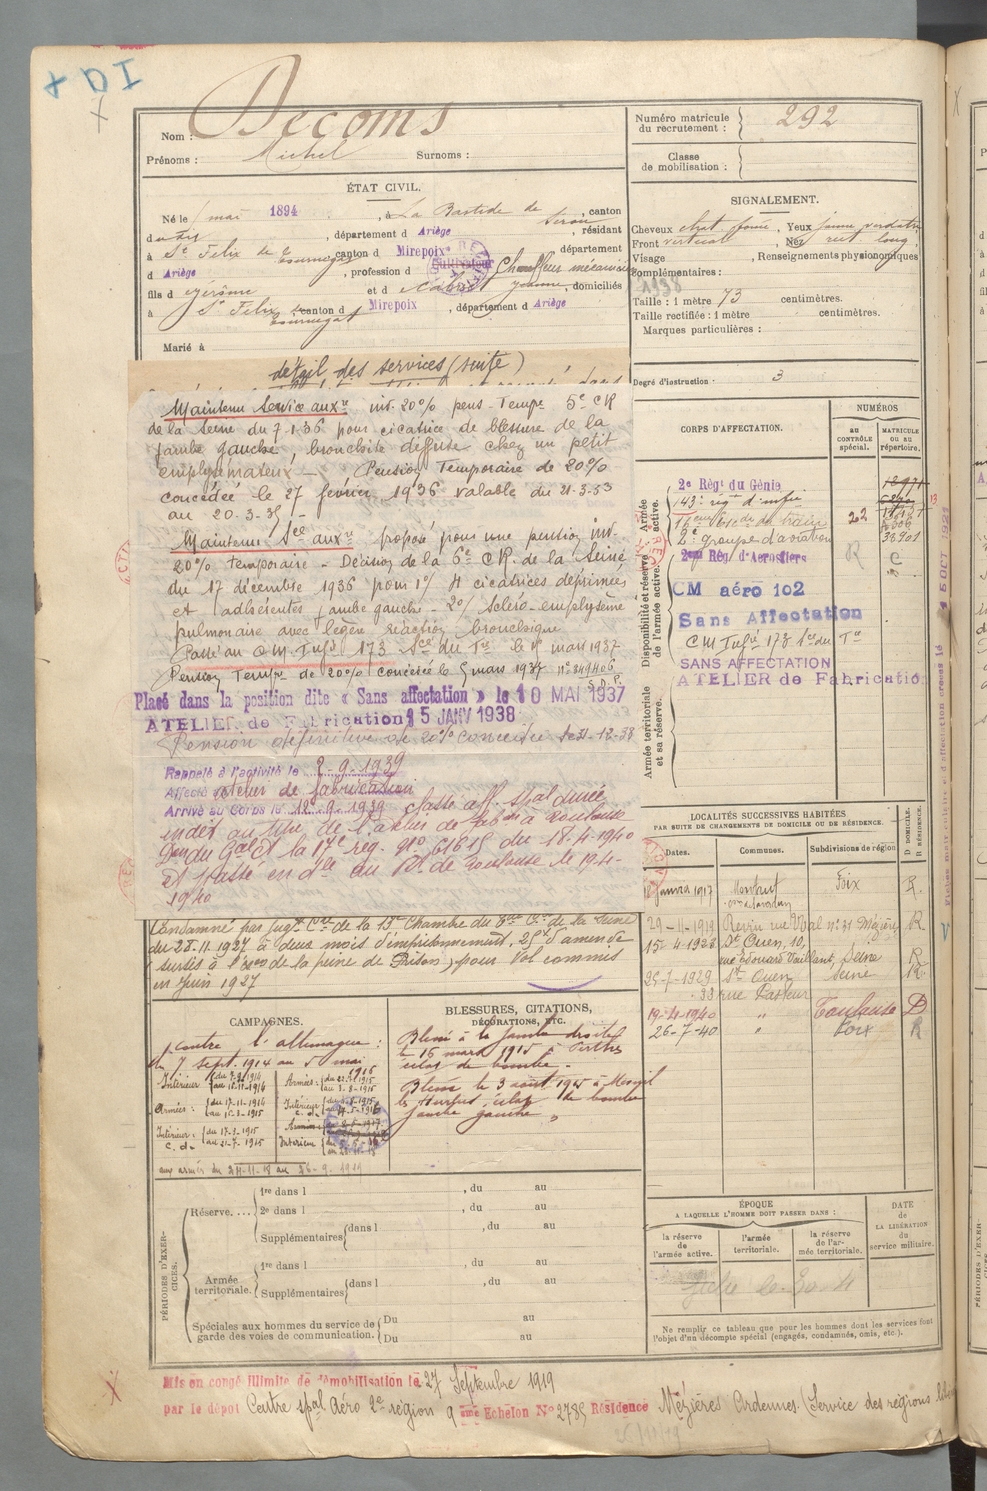 Nom : Decoms
Prénoms : Michel Surnoms :
Numéro matricule du recrutement : 292
Classe de mobilisation :
ÉTAT CIVIL.
Né le 1 mai 1894, à La Bastide de Serou, canton
du dit, département d Ariège, résidant
à St Felix de Tournegat canton d Mirepoix département
d Ariège, profession d Cultivateur Chauffeur mécanicien
fils d Jérôme et d Jeanne, domiciliés
à St Felix Tournegat canton d Mirepoix, département d Ariège
Marié à
SIGNALEMENT.
Cheveux chat. foncé, Yeux jaune verdatre
Front vertical, Nez rect long,
Visage , Renseignements physionomiques
complémentaires :
1938
Taille : 1 mètre 73 centimètres.
Taille rectifiée : 1 mètre centimètres.
Marques particulières :
Degré d'instruction : 3
détail des services (suite)
Maintenu Service auxre inv. 20% pens. Tempre 5e CR
de la Seine du 7.1.36 pour cicatrice de blessure de la
jambe gauche, bronchite diffuse chez un petit
emphysémateux — Pension Temporaire de 20%
concédée le 27 février 1936 valable du 21-3-33
au 20.3.35 -
Maintenu Sce auxre proposé pour une pension inv.
20% temporaire - Décision de la 6e CR. de la Seine
du 17 décembre 1936 pour 1°/ 4 cicatrices déprimées
et adhérentes jambe gauche - 2°/ Scléro-emphysème
pulmonaire avec légère réaction bronchique
Passé au C.M. Infie 173 Sce du Tre le 1r mars 1937
Pension Tempre de 20% concédée le 5 mars 1937 n° 349406
S.D.P.
Placé dans la position dite « Sans affectation » le 10 MAI 1937
ATELIER de Fabrication 15 JANV 1938
Pension définitive de 20% concédée le 31-12-38
Rappelé à l'activité le 2-9-1939
Affecté atelier de fabrication
Arrivé au Corps le 12-9-1939 Classé aff. spal durée
indét. au titre de l'atelier de fabon à Toulouse
Don du Gal Ct la 17e rég. n° 61615 du 18-4-1940
et passé en dle au Bl. de Toulouse le 19-4-
1940
Condamné par jugt Cre de la 13e Chambre du Tral Cel de la Seine
du 28.11.1927 à deux mois d'emprisonnement, 25f d'amende
(sursis à l'exon de la peine de Prison) pour Vol commis
en Juin 1927
CORPS D'AFFECTATION.
NUMÉROS
AU CONTRÔLE spécial.
MATRICULE OU AU répertoire.
Armée active.
Disponibilité et réserve de l'armée active.
Armée territoriale et sa réserve.
2e Régt du Génie
143e régt d'infie
16eme Escon du train 202
2e groupe d'aviation
2eme Rég. d'Aérostiers R
CM aéro 102
Sans Affectation
CM Infie 173 Sce du Tre
SANS AFFECTATION
ATELIER de Fabrication
LOCALITÉS SUCCESSIVES HABITÉES
PAR SUITE DE CHANGEMENTS DE DOMICILE OU DE RÉSIDENCE.
Dates. Communes. Subdivisions de région D DOMICILE. R RÉSIDENCE.
Janvier 1917 Foix R.
29-11-1919 Revin rue Voltaire n° 31 Mézières R
15-4-1923 St Ouen, 10,
rue Edouard Vaillant, Seine R
25-7-1929 St Ouen Seine R
33 rue Pasteur
19-4-1940 " Toulouse D
26-7-40 " Foix R
CAMPAGNES.
Contre l'allemagne :
du 7 sept. 1914 au 5 mai 1916
Intérieur du 7.9.1914 au 16-11-1914
Armées : du 17-11-1914 au 16-3-1915
Intérieur c.d. du 17-3-1915 au 21-7-1915
Armées : du 22-7-1915 au 3-8-1915
aux armées du 24-11-18 au 26-9-1919
BLESSURES, CITATIONS, DÉCORATIONS, ETC.
Blessé à la jambe droite
le 16 mars 1915 à Perthes
éclat de bombe.
Blessé le 3 août 1915 à Mesnil
les Hurlus, éclat de bombe
jambe gauche "
PÉRIODES D'EXERCICES.
Réserve....
1re dans l , du au
2e dans l , du au
Supplémentaires dans l , du au
Armée territoriale.
1re dans l , du au
Supplémentaires dans l , du au
Spéciales aux hommes du service de garde des voies de communication.
Du au
Du au
ÉPOQUE
A LAQUELLE L'HOMME DOIT PASSER DANS :
la réserve de l'armée active.
l'armée territoriale.
la réserve de l'armée territoriale.
DATE de LA LIBÉRATION du service militaire.
Ne remplir ce tableau que pour les hommes dont les services font
l'objet d'un décompte spécial (engagés, condamnés, omis, etc.).
Mis en congé illimité de démobilisation le 27 Septembre 1919
par le dépôt Centre spal Aéro 2e région 9 ème Echelon N° 2785 Résidence Mézières Ardennes. (Service des régions